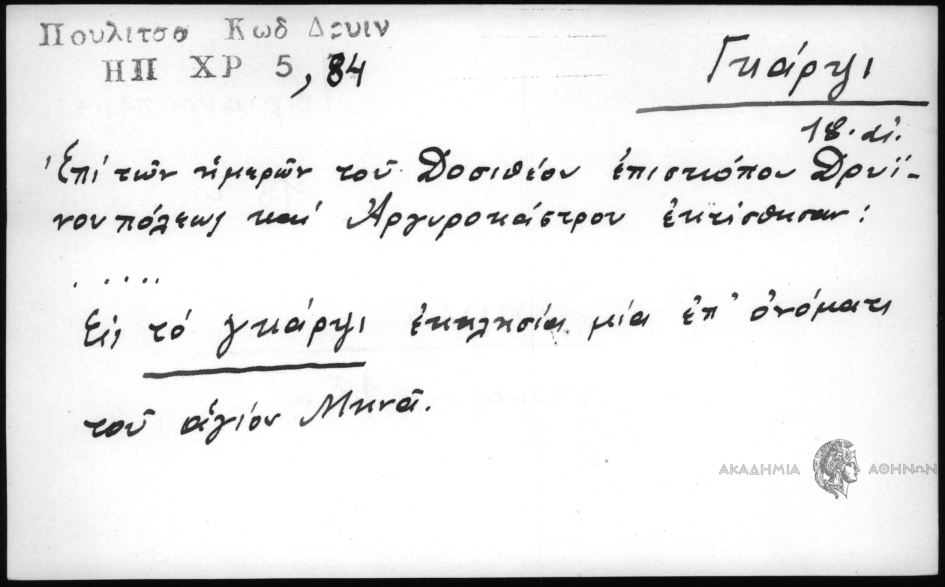 Πουλιτσα Κωδ Δρυιν
ΗΠ ΧΡ 5, 84
Γκάρψι
18. αἰ.
Ἐπί τῶν ἡμερῶν τοῦ Δοσιθέου ἐπισκόπου Δρυϊ-
νουπόλεως καί Ἀργυροκάστρου ἐκτίσθησαν:
.....
Εἰς τό γκάρψι ἐκκλησία μία ἐπ' ὀνόματι
τοῦ ἁγίου Μηνᾶ.
ΑΚΑΔΗΜΙΑ ΑΘΗΝΩΝ